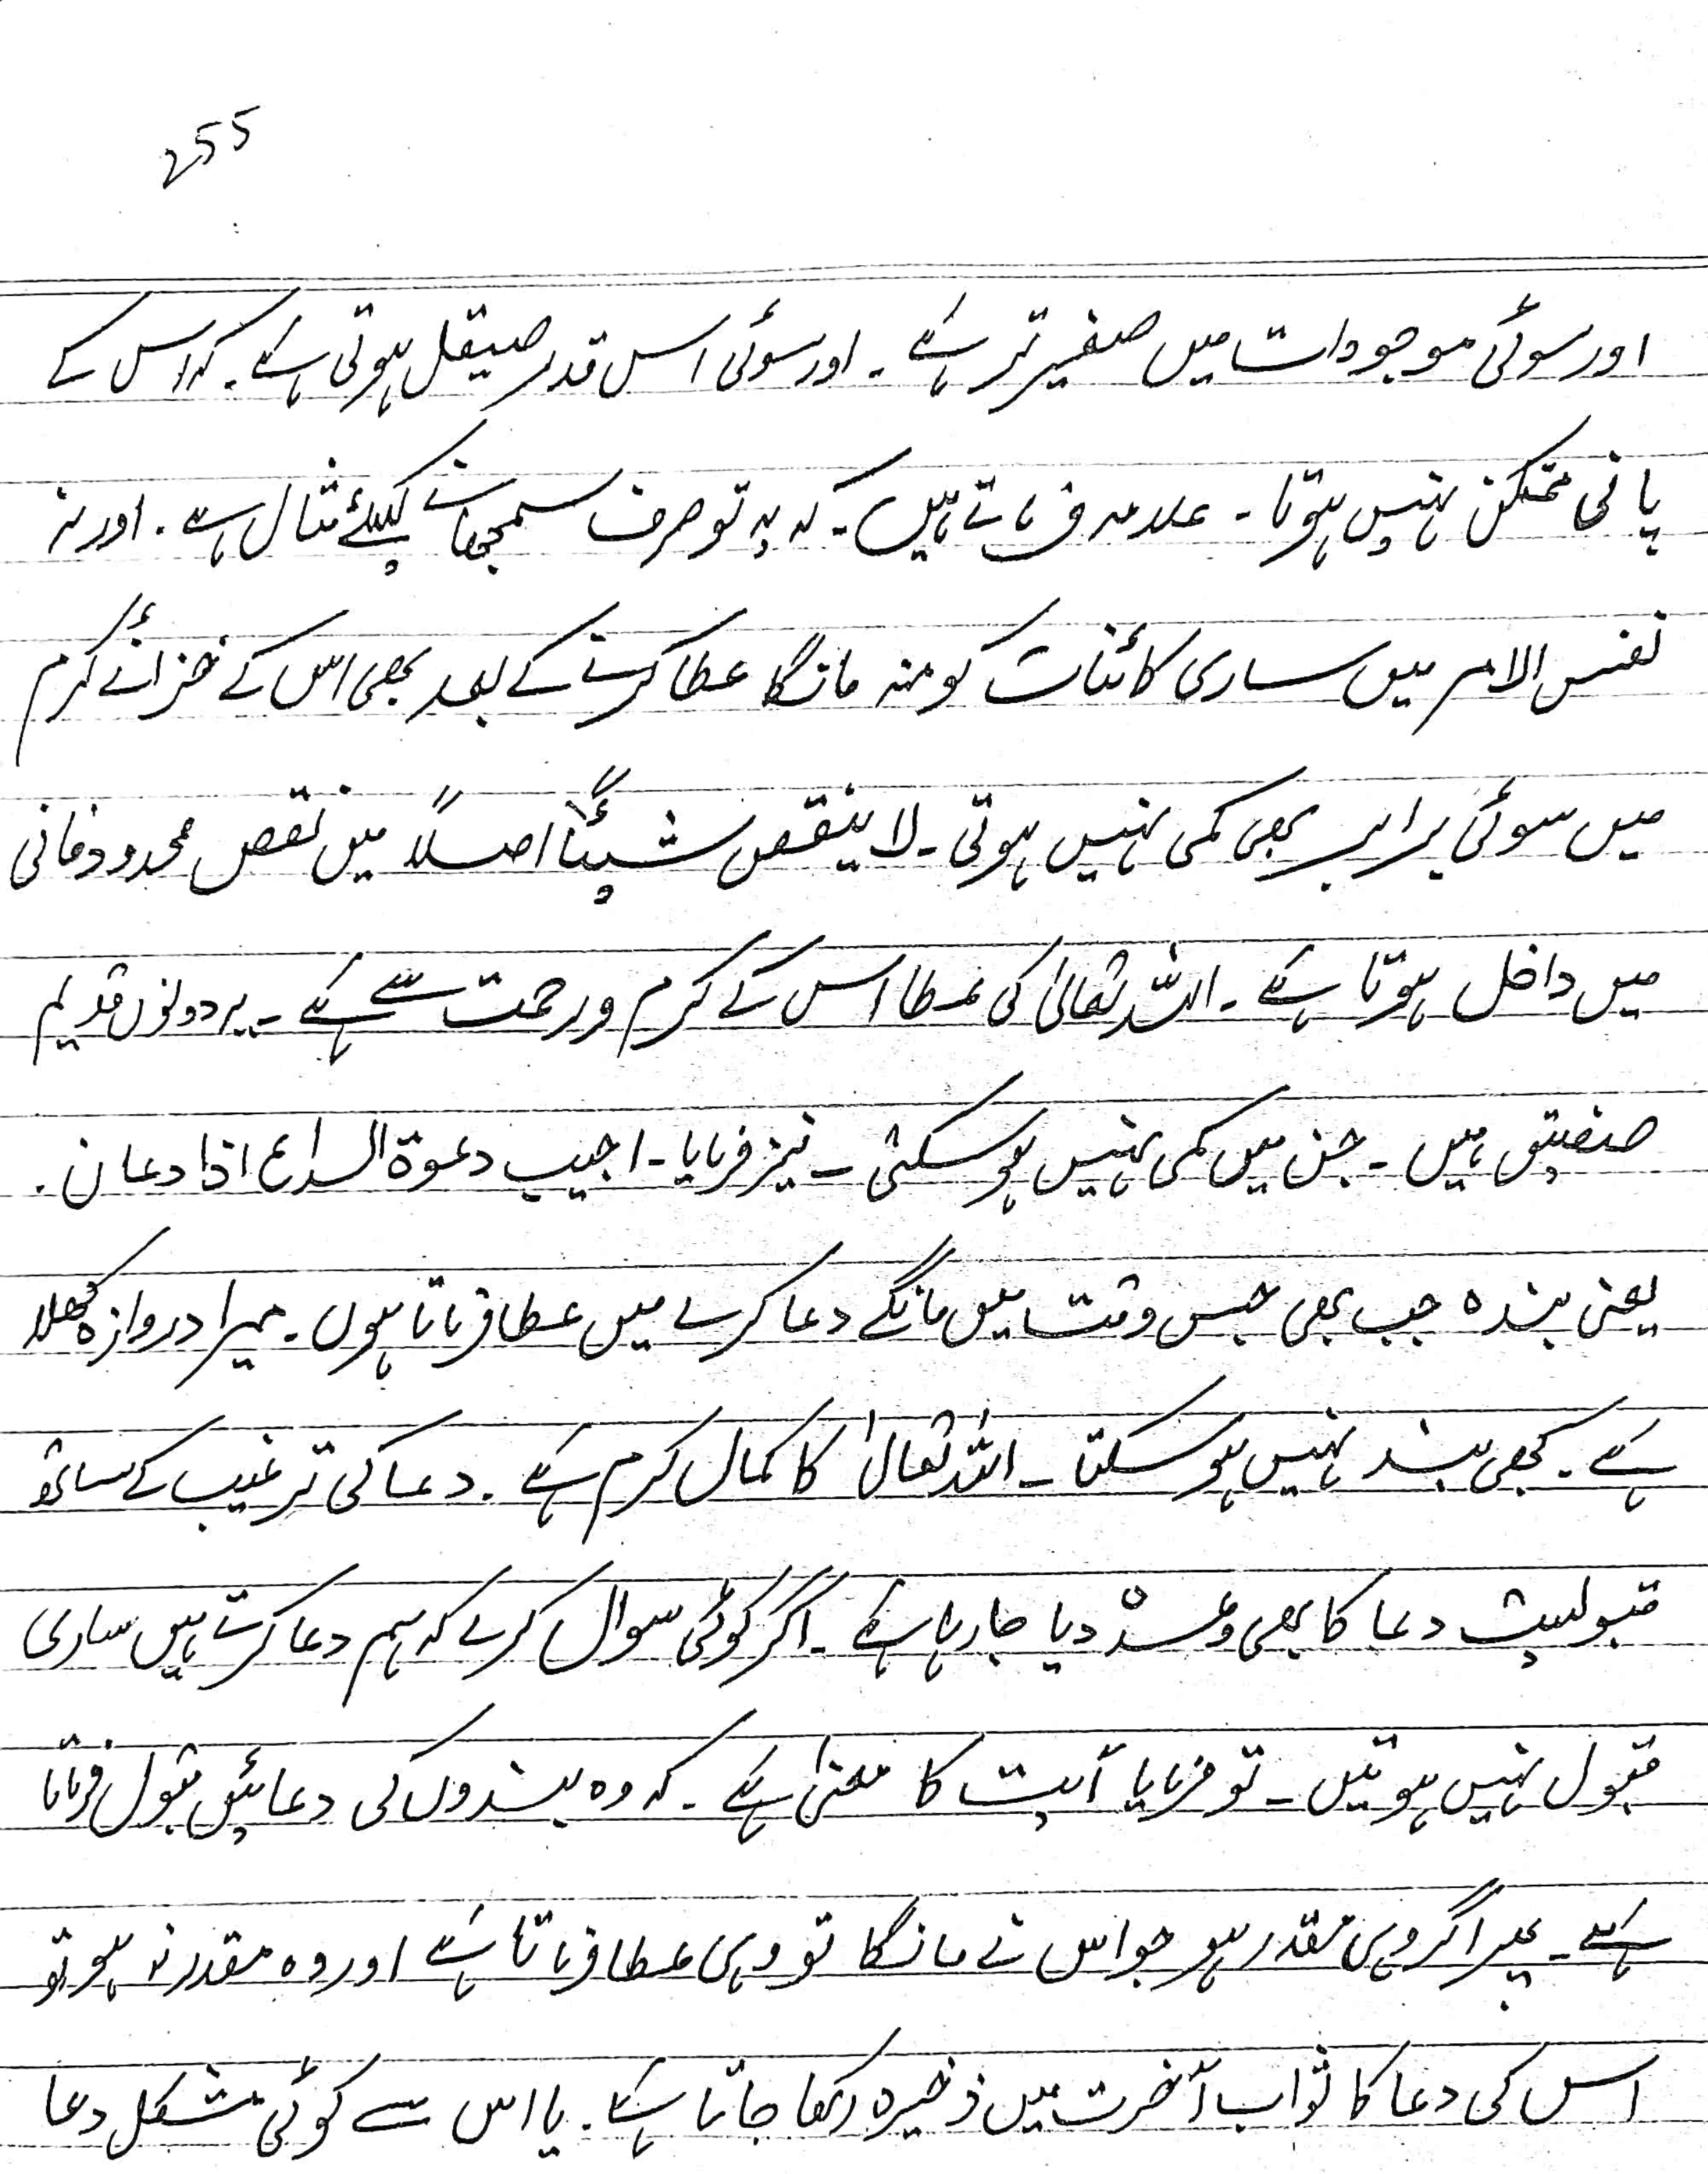 255
اور سوئی موجودات میں صغیر تر ہے ۔ اور سوئی اس قدر صیقل ہوتی ہے ۔ کہ اس کے
پانی متمکن نہیں ہوتا ۔ علامہ فرماتے ہیں ۔ کہ یہ تو صرف سمجھانے کیلئے مثال ہے ۔ اور نہ
نفس الامر میں ساری کائنات کو منہ مانگا عطا کرنے کے بعد بھی اس کے خزانۂ کرم
میں سوئی برابر بھی کمی نہیں ہوتی ۔ لا ینقص شیئًا اصلًا میں نقص محدود فانی
میں داخل ہوتا ہے ۔ اللہ تعالیٰ کی عطا اس کے کرم و رحمت سے ہے ۔ یہ دونوں قدیم
صفتیں ہیں ۔ جن میں کمی نہیں ہو سکتی ۔ نیز فرمایا ۔ اجیب دعوۃ الداع اذا دعان ۔
یعنی بندہ جب بھی جس وقت میں مانگے دعا کرے میں عطا فرماتا ہوں ۔ میرا دروازہ کھلا
ہے ۔ کبھی بند نہیں ہو سکتا ۔ اللہ تعالیٰ کا کمال کرم ہے ۔ دعا کی ترغیب کے ساتھ
قبولیت دعا کا بھی وعدہ دیا جا رہا ہے ۔ اگر کوئی سوال کرے کہ ہم دعا کرتے ہیں ساری
قبول نہیں ہوتیں ۔ تو فرمایا آیت کا معنیٰ ہے ۔ کہ وہ بندوں کی دعائیں قبول فرماتا
ہے ۔ پھر اگر وہی مقدر ہو جو اس نے مانگا تو وہی عطا فرماتا ہے اور وہ مقدر نہ ہو تو
اس کی دعا کا ثواب آخرت میں ذخیرہ رکھا جاتا ہے ۔ یا اس سے کوئی مشکل دعا